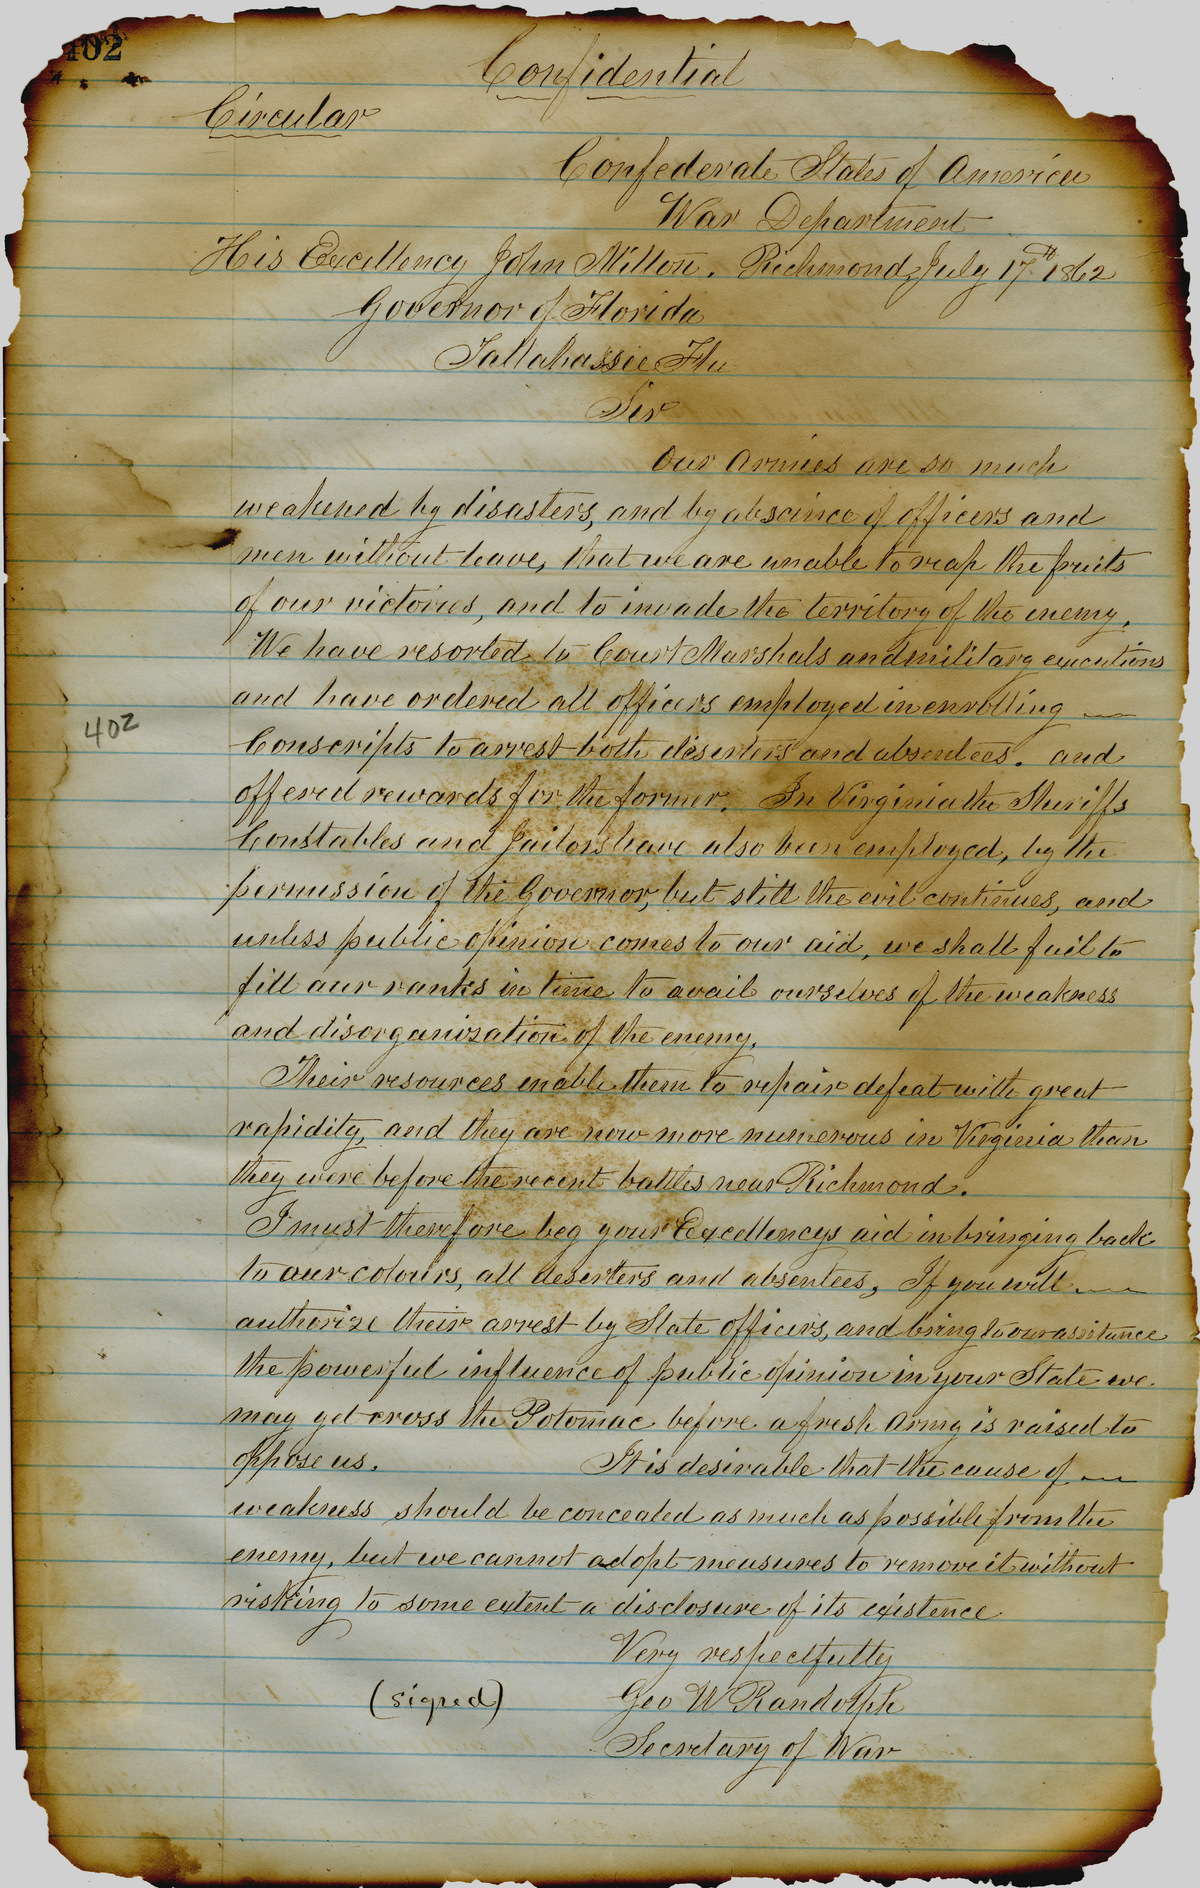 402
Confidential
Circular
Confederate States of America
War Department
His Excellency John Milton. Richmond, July 17th 1862
Governor of Florida
Tallahassee Fla
Sir
Our Armies are so much
weakened by disasters, and by abscince of officers and
men without leave, that we are unable to reap the fruits
of our victories, and to invade the territory of the enemy.
We have resorted to Court Marshals and military executions
and have ordered all officers employed in enrolling
Conscripts to arrest both deserters and absentees. and
offered rewards for the former. In Virginia the Sheriffs
Constables and Jailors have also been employed, by the
permission of the Governor, but still the evil continues, and
unless public opinion comes to our aid, we shall fail to
fill our ranks in time to avail ourselves of the weakness
and disorganization of the enemy.
Their resources enable them to repair defeat with great
rapidity, and they are now more numerous in Virginia than
they were before the recent battles near Richmond.
I must therefore beg your Excellencys aid in bringing back
to our colours, all deserters and absentees, If you will
authorize their arrest by State officers, and bring to our assistance
the powerful influence of public opinion in your State we
may yet cross the Potomac before a fresh Army is raised to
oppose us. It is desirable that the cause of
weakness should be concealed as much as possible from the
enemy, but we cannot adopt measures to remove it without
risking to some extent a disclosure of its existence
Very respectfully
(signed) Geo W Randolph
Secretary of War
402